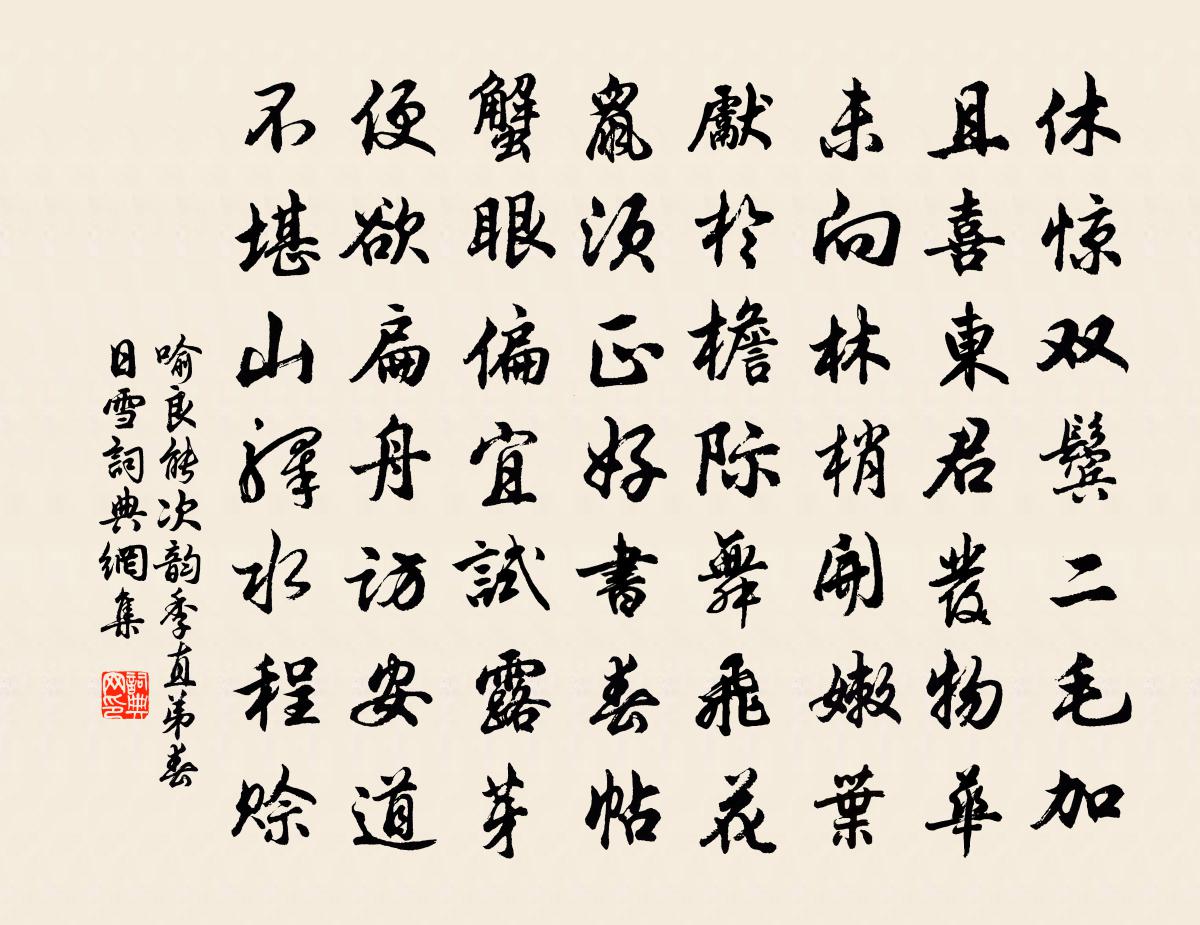 休惊双鬓二毛加
且喜東君發物華
未向林梢開嫩葉
獻於檐际舞飛花
鼠须正好書春帖
蟹眼偏宜試露芽
便欲扁舟訪安道
不堪山驛水程赊
喻良能次韵季直弟春
日雪詞典網集
詞典网印